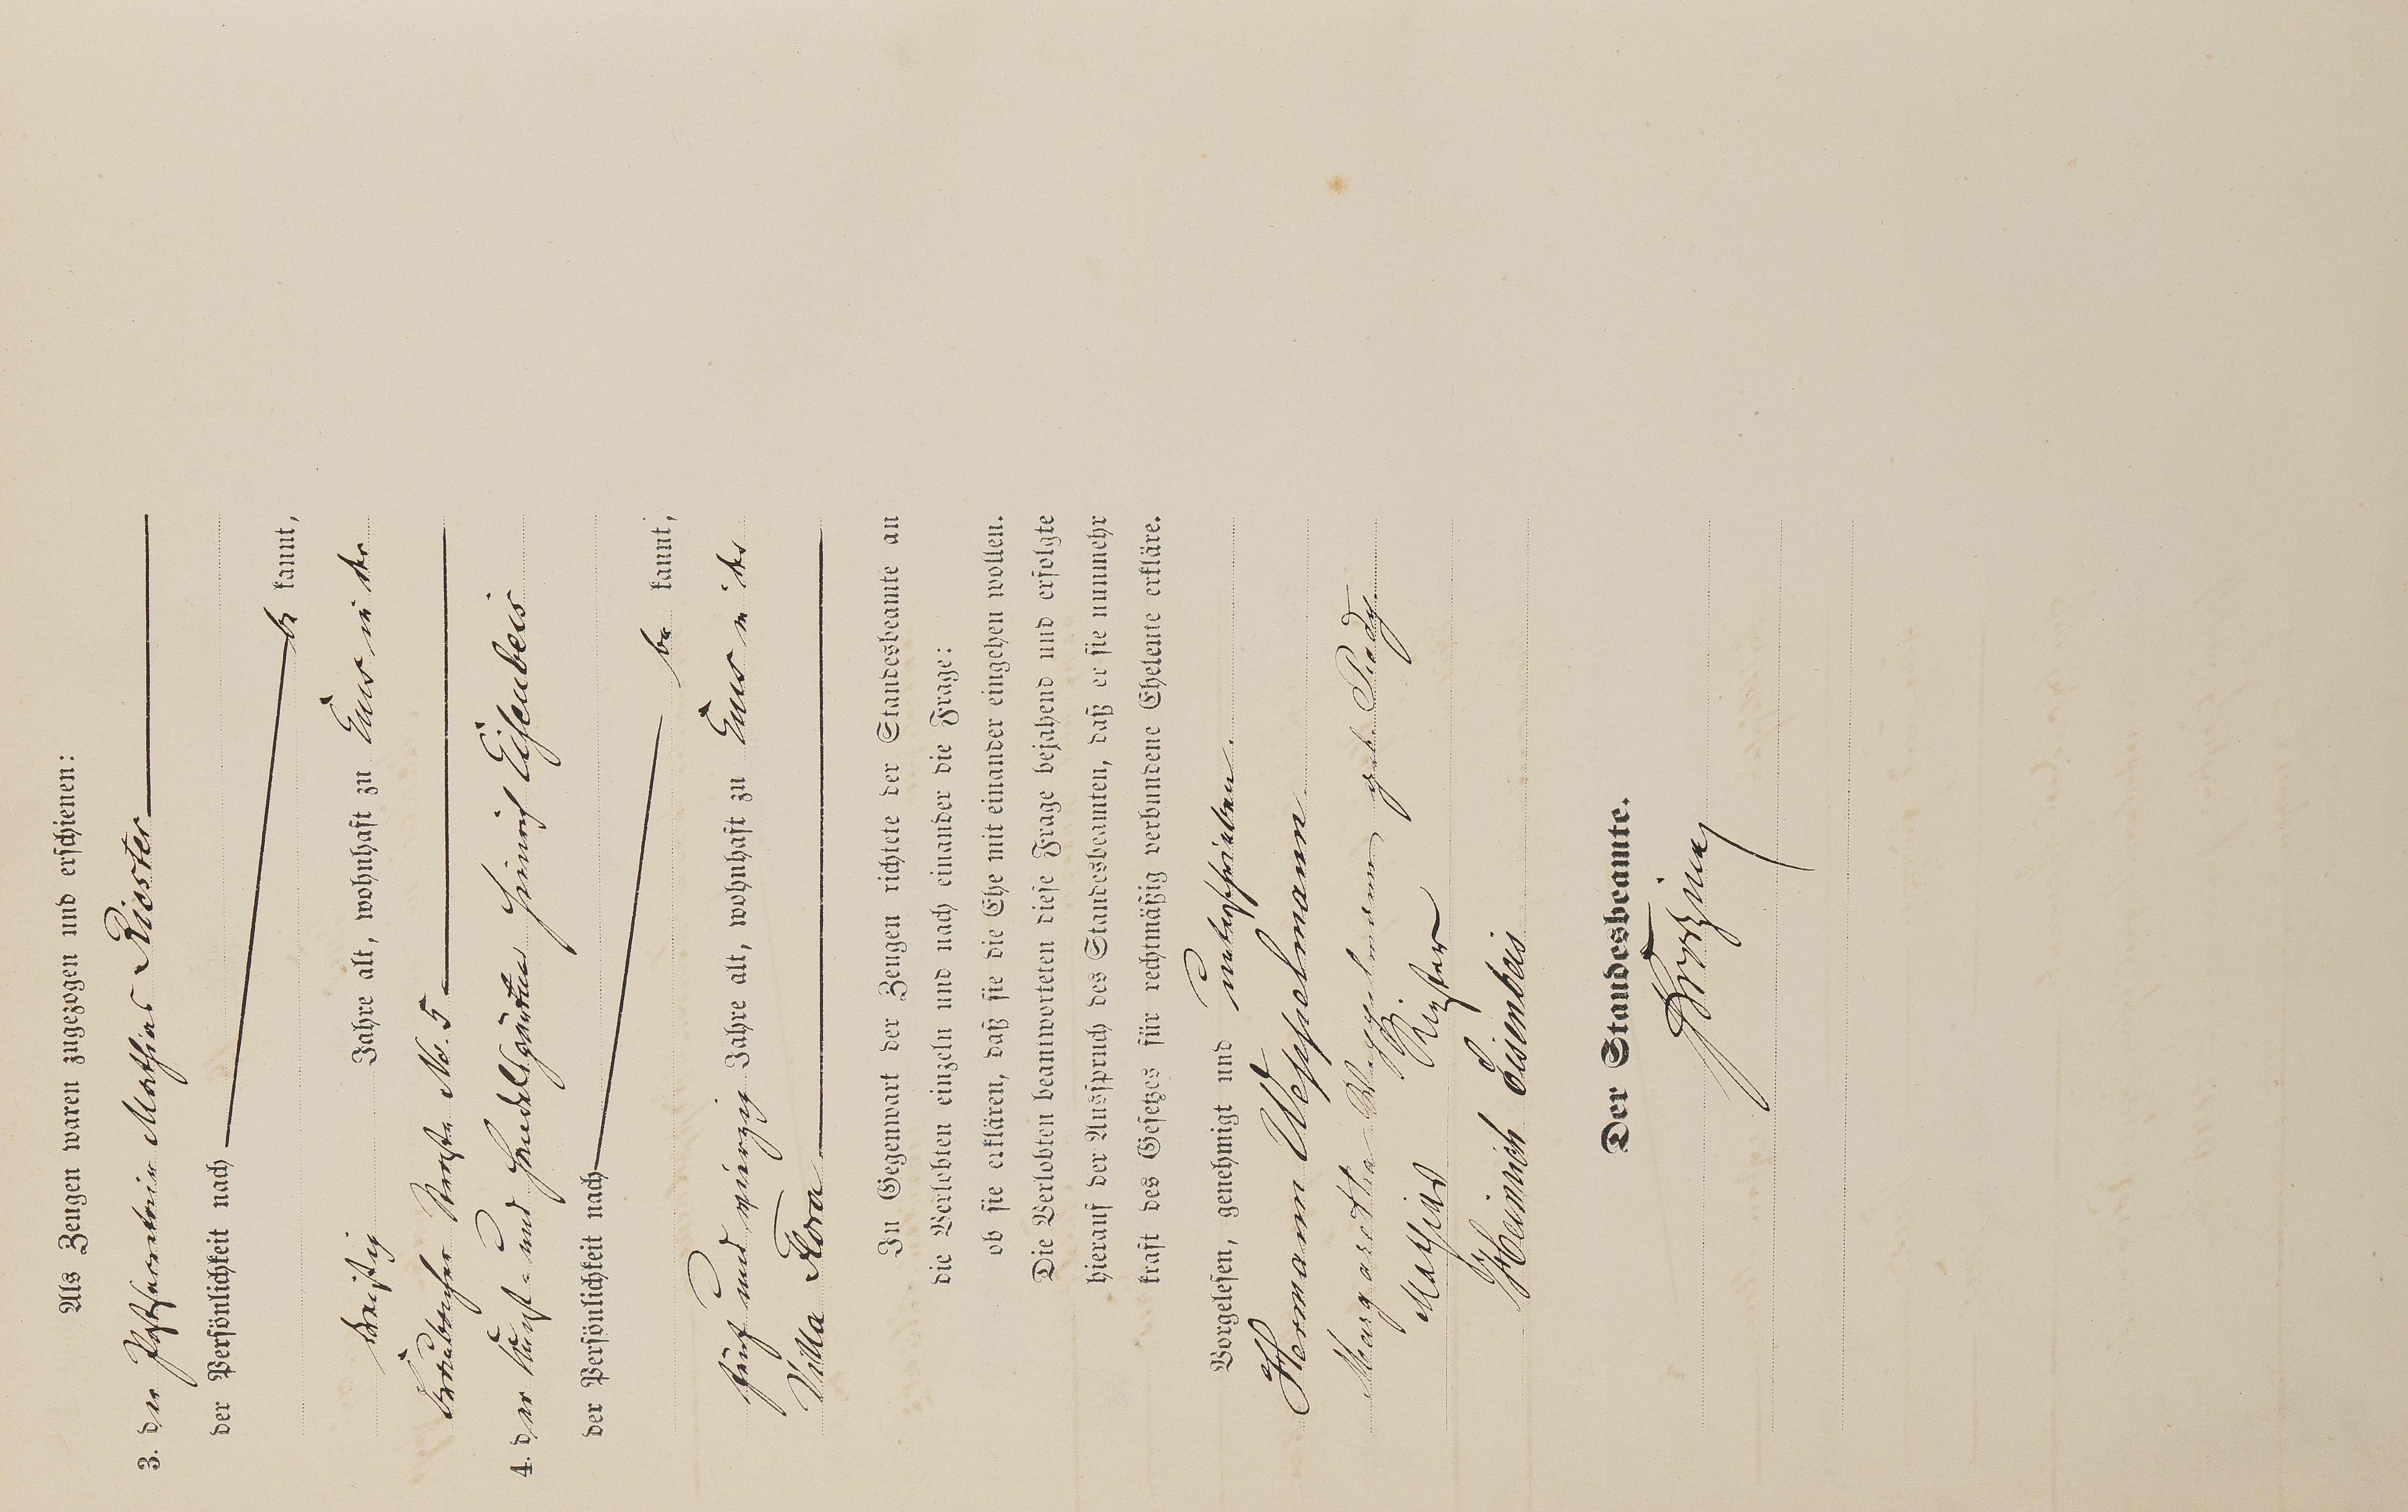 Als Zeugen waren zugezogen und erschienen:
3. der Mathias Riester
der Persönlichkeit nach
be kannt,
dreißig Jahre alt, wohnhaft zu Ems in der
Straße No. 5
4. der Kunst- und Handelsgärtner Heinrich Eisenbeis
der Persönlichkeit nach
be kannt,
fünf und vierzig Jahre alt, wohnhaft zu Ems in der
Villa Flora
In Gegenwart der Zeugen richtete der Standesbeamte an
die Verlobten einzeln und nach einander die Frage:
ob sie erklären, daß sie die Ehe mit einander eingehen wollen.
Die Verlobten beantworteten diese Frage bejahend und erfolgte
hierauf der Ausspruch des Standesbeamten, daß er sie nunmehr
kraft des Gesetzes für rechtmäßig verbundene Eheleute erkläre.
Vorgelesen, genehmigt und unterschrieben.
Hermann Weppelmann
Margaretha Weppelmann geb.
Mathias Riester
Heinrich Eisenbeis
Der Standesbeamte.